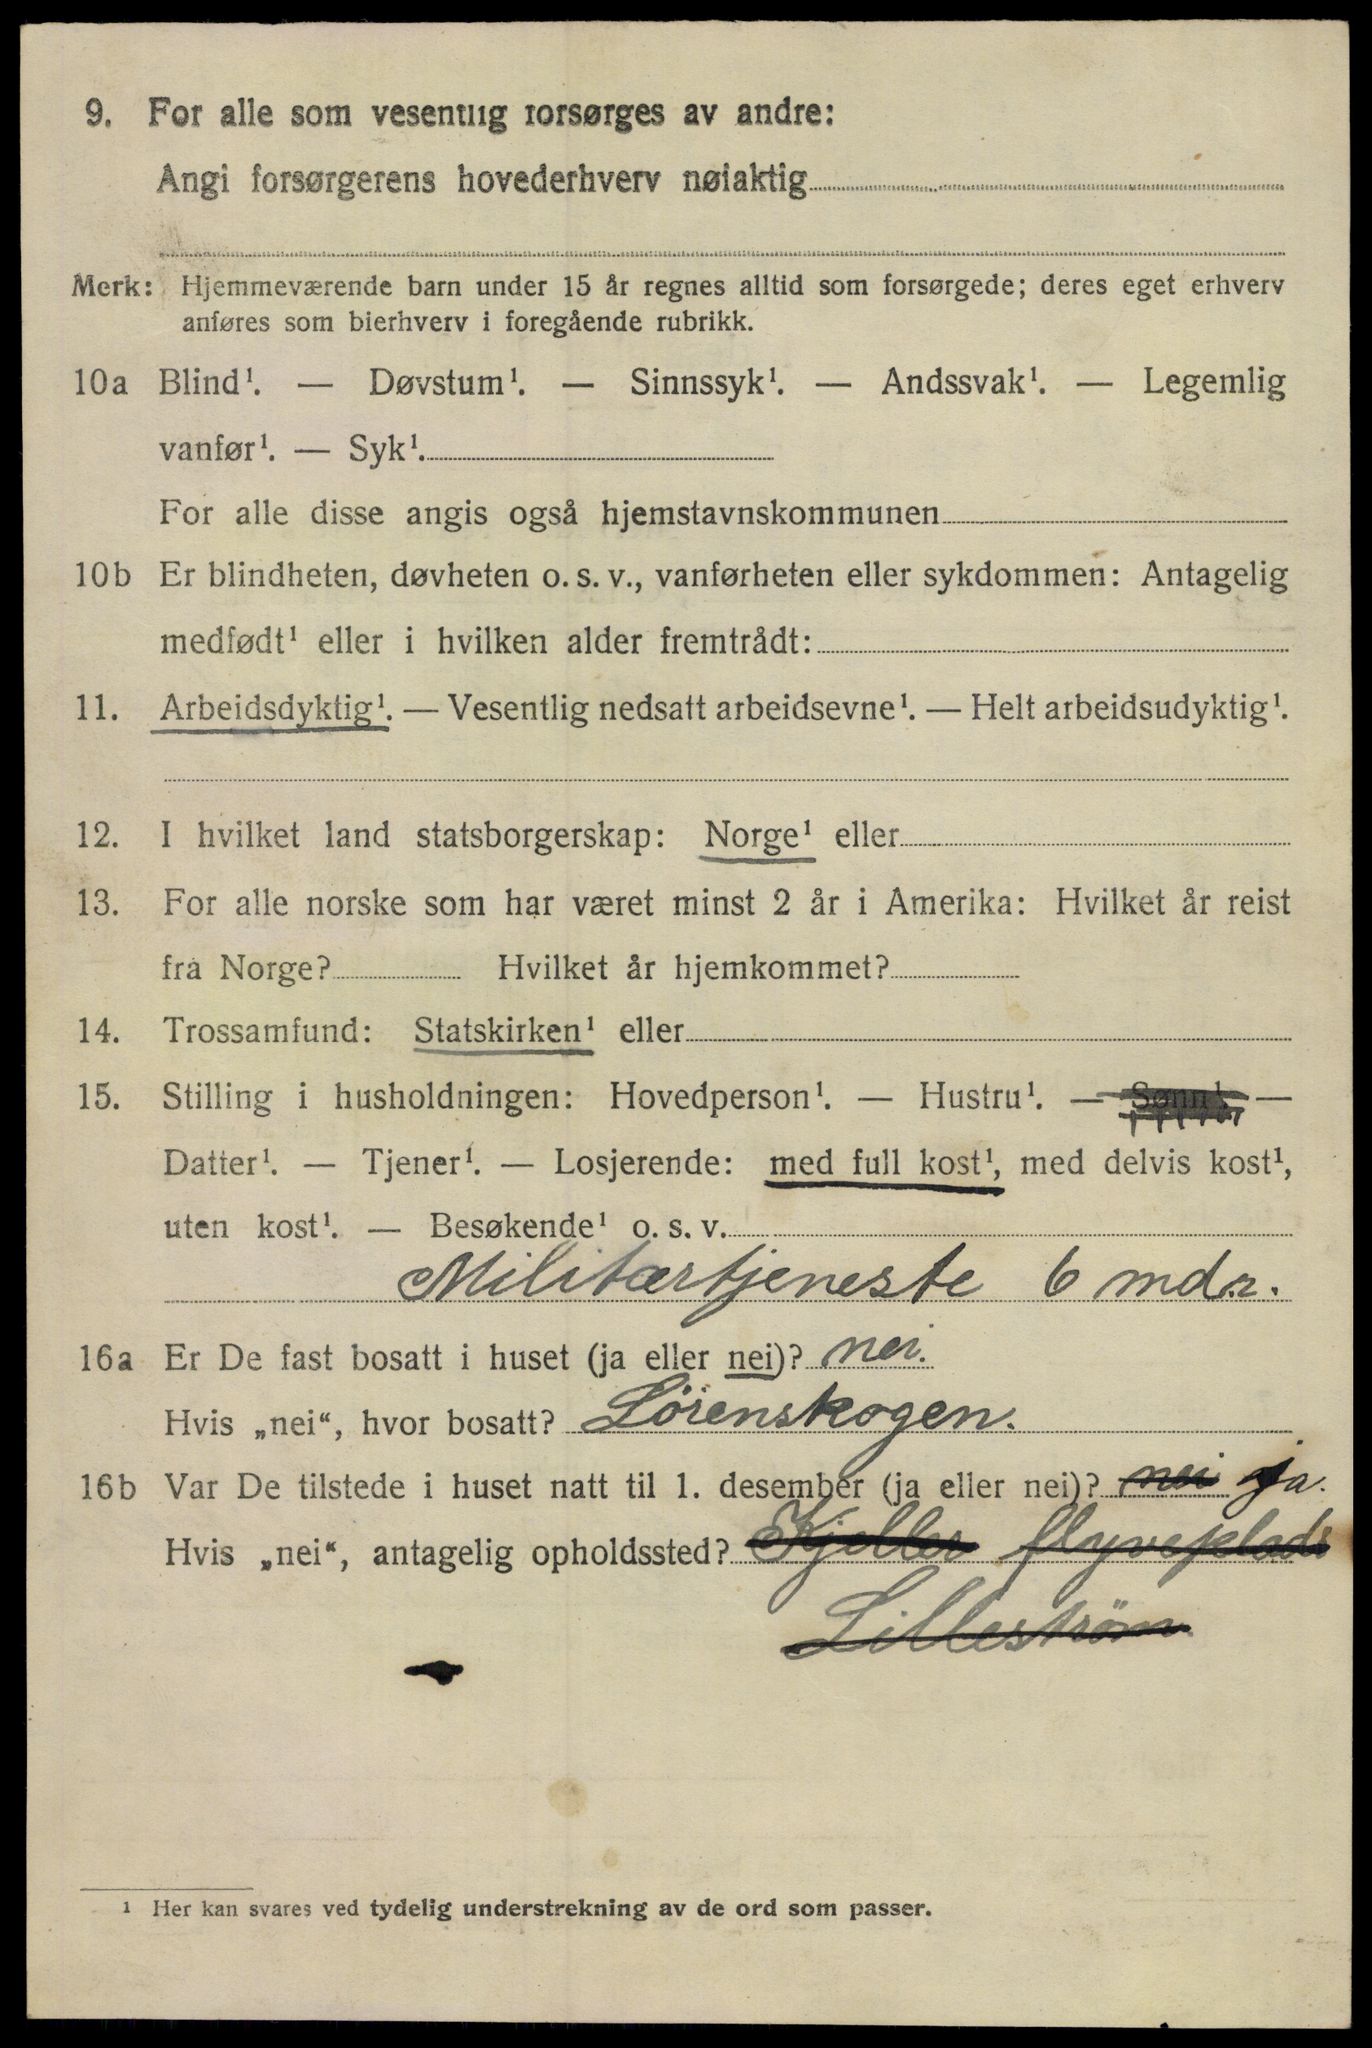 9. For alle som vesentlig forsørges av andre:
Angi forsørgerens hovederhverv nøiaktig
Merk: Hjemmeværende barn under 15 år regnes alltid som forsørgede; deres eget erhverv
anføres som bierhverv i foregående rubrikk.
10a Blind¹. — Døvstum¹. — Sinnssyk¹. — Andssvak¹. — Legemlig
vanfør¹. — Syk¹.
For alle disse angis også hjemstavnskommunen
10b Er blindheten, døvheten o. s. v., vanførheten eller sykdommen: Antagelig
medfødt¹ eller i hvilken alder fremtrådt:
11. Arbeidsdyktig¹. — Vesentlig nedsatt arbeidsevne¹. — Helt arbeidsudyktig¹.
12. I hvilket land statsborgerskap: Norge¹ eller
13. For alle norske som har været minst 2 år i Amerika: Hvilket år reist
fra Norge? Hvilket år hjemkommet?
14. Trossamfund: Statskirken¹ eller
15. Stilling i husholdningen: Hovedperson¹. — Hustru¹. — Sønn¹. —
Datter¹. — Tjener¹. — Losjerende: med full kost¹, med delvis kost¹,
uten kost¹. — Besøkende¹ o. s. v.
Militærtjeneste 6 mdr.
16a Er De fast bosatt i huset (ja eller nei)? nei.
Hvis „nei“, hvor bosatt? Lörenskogen.
16b Var De tilstede i huset natt til 1. desember (ja eller nei)? nei ja.
Hvis „nei“, antagelig opholdssted? Kjeller flyveplads
Lilleström.
¹ Her kan svares ved tydelig understrekning av de ord som passer.